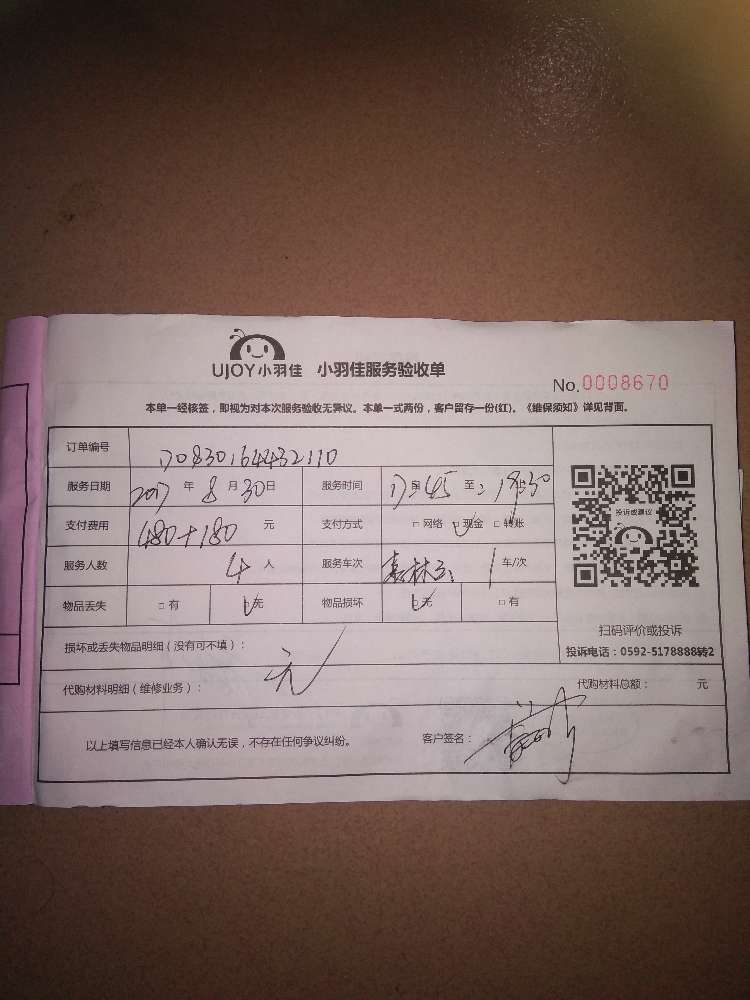 UJOY小羽佳 小羽佳服务验收单
No.0008670
本单一经核签，即视为对本次服务验收无异议。本单一式两份，客户留存一份(红)。《维保须知》详见背面。
订单编号 170830164432110
服务日期 2017 年 8 月 30 日 服务时间 17:45 至: 18:30
支付费用 480+180 元 支付方式 □ 网络 □ 现金 □ 转账
服务人数 4 人 服务车次 1 车/次
物品丢失 □ 有 □ 无 物品损坏 □ 无 □ 有
损坏或丢失物品明细（没有可不填）：
无
代购材料明细（维修业务）： 代购材料总额： 元
以上填写信息已经本人确认无误，不存在任何争议纠纷。 客户签名：
投诉或建议
扫码评价或投诉
投诉电话：0592-5178888转2